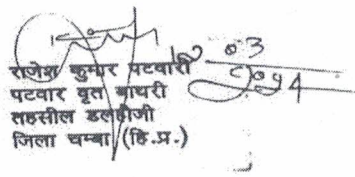 राजेश कुमार पटवारी
पटवार वृत बाथरी
तहसील डलहौजी
जिला चम्बा (हि.प्र.)